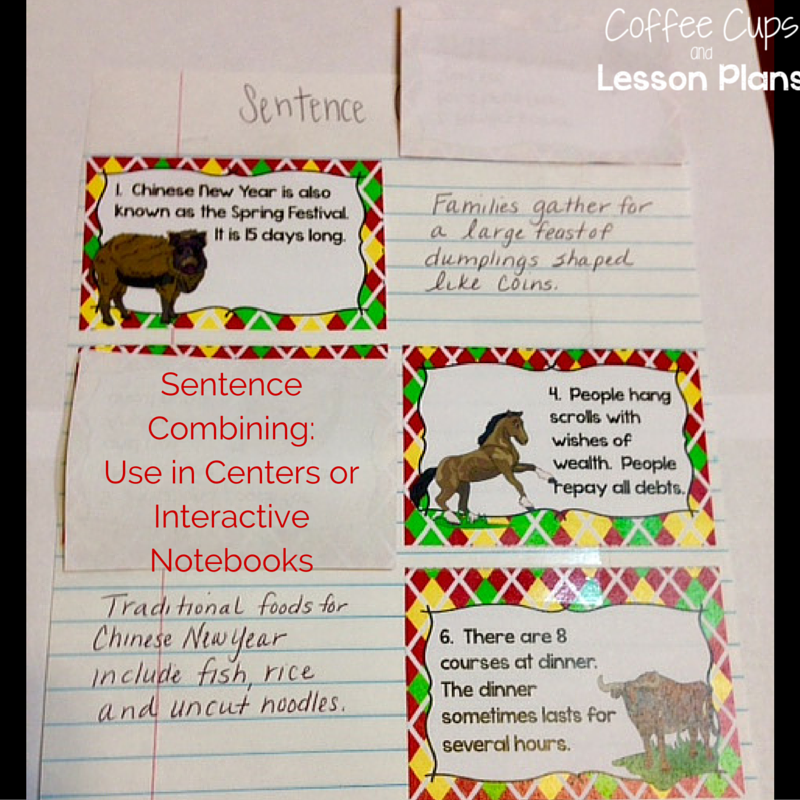 Coffee Cups
and
Lesson Plans
Sentence
1. Chinese New Year is also
known as the Spring Festival.
It is 15 days long.
Families gather for
a large feast of
dumplings shaped
like coins.
Sentence
Combining:
Use in Centers or
Interactive
Notebooks
4. People hang
scrolls with
wishes of
wealth. People
repay all debts.
Traditional foods for
Chinese New Year
include fish, rice
and uncut noodles.
6. There are 8
courses at dinner.
The dinner
sometimes lasts for
several hours.